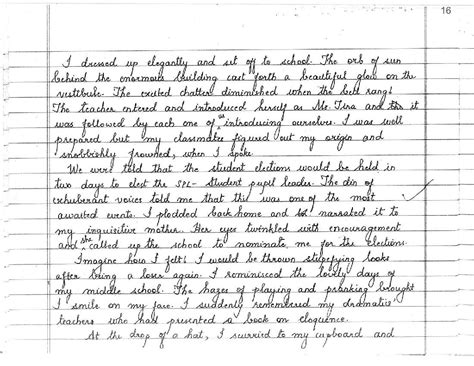 16
I dressed up elegantly and set off to school. The orb of sun
behind the enormous building cast forth a beautiful glow on the
vestibule. The excited chatter diminished when the bell rang!
The teacher entered and introduced herself as Ms. Tina and it
was followed by each one of us introducing ourselves. I was well
prepared but my classmates figured out my origin and
snobbishly frowned, when I spoke.
We were told that the student elections would be held in
two days to elect the SPL- Student pupil leader. The din of
exhuberant voices told me that this was one of the most
awaited events. I plodded back home and narrated it to
my inquisitive mother. Her eyes twinkled with encouragement
and she called up the school to nominate me for the elections.
Imagine how I felt! I would be thrown stupefying looks
after being a loser again. I reminisced the lovely days of
my middle school. The hazes of playing and pranking brought
a smile on my face. I suddenly remembered my dramatic
teachers who had presented a book on eloquence.
At the drop of a hat, I scurried to my cupboard and